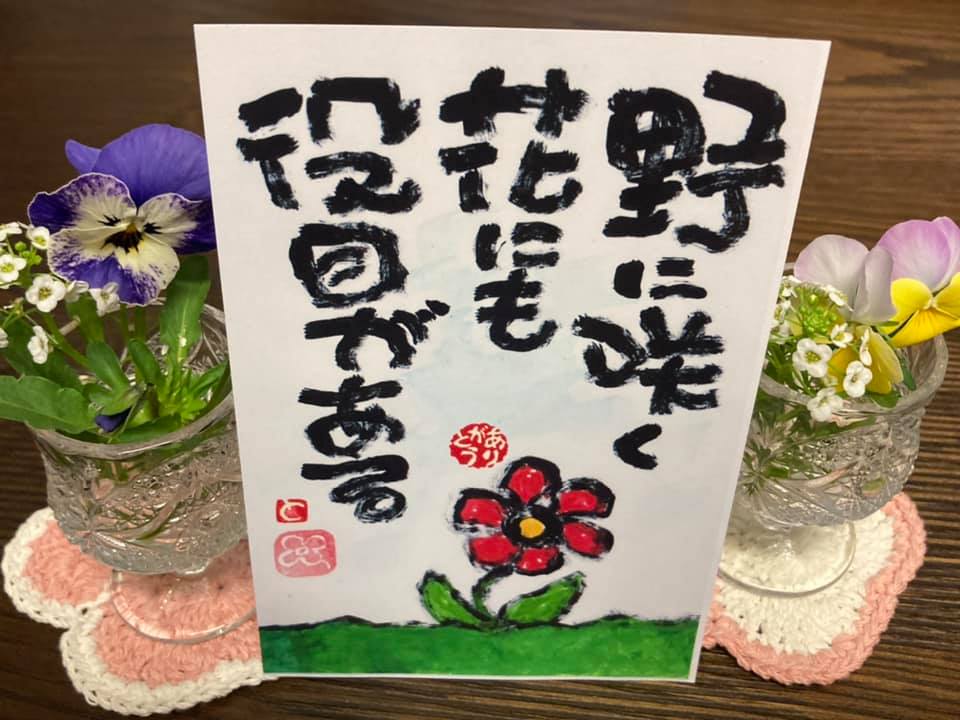 野に咲く
花にも
役目がある
ありがとう
と